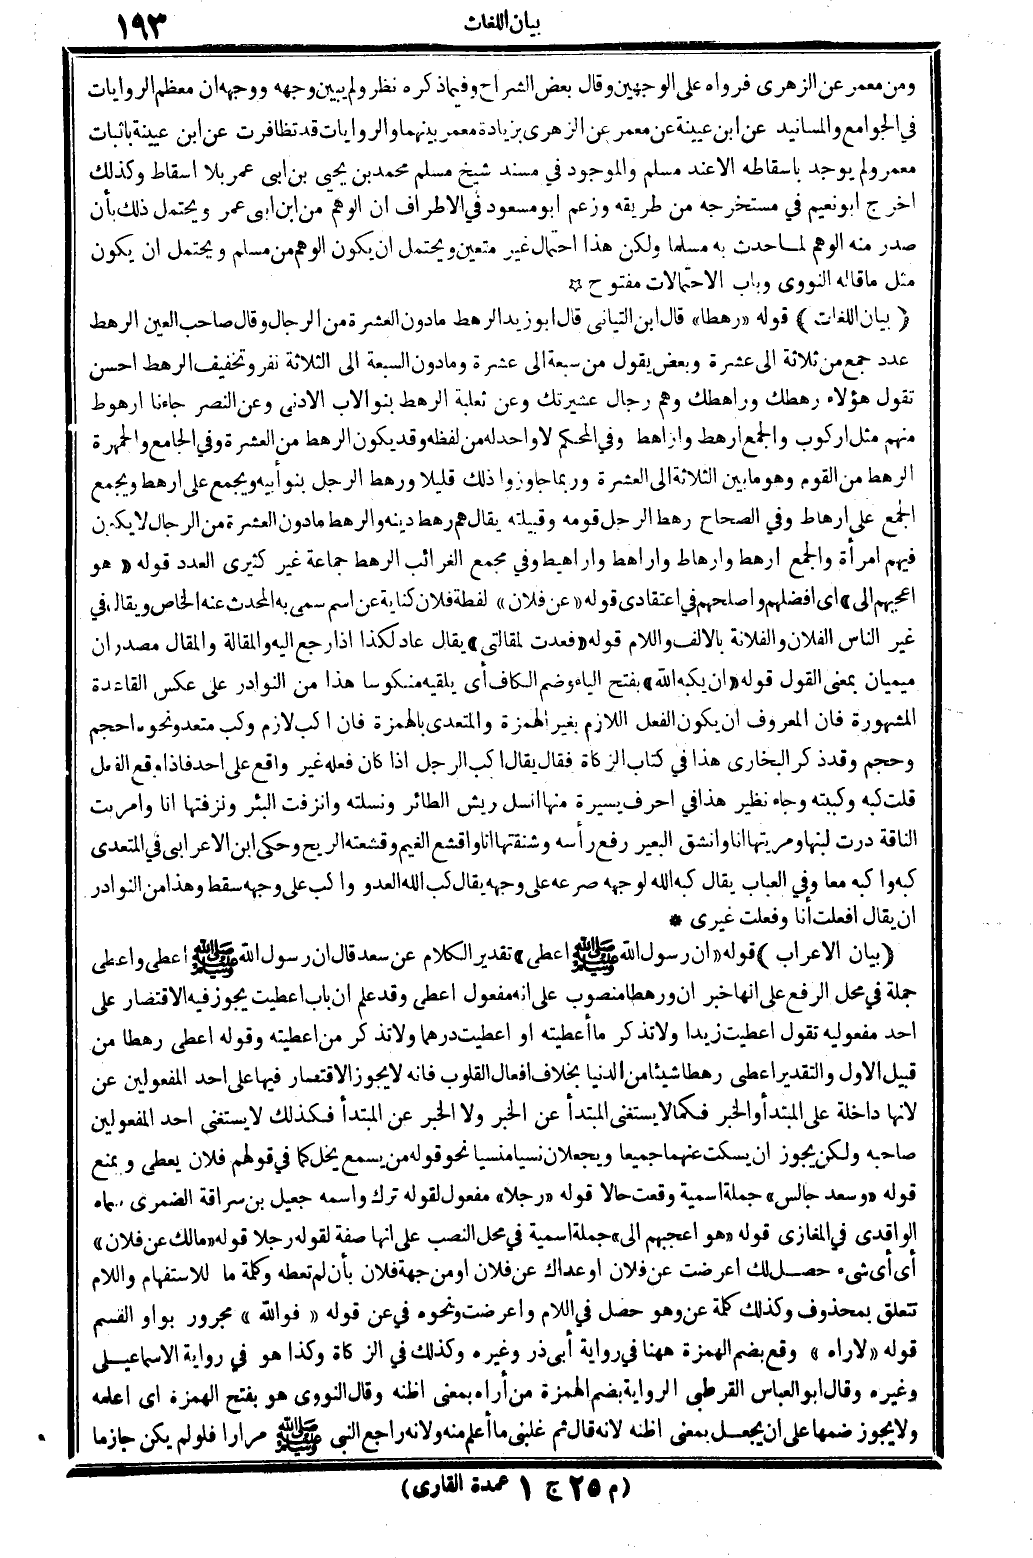 بيان اللغات
١٩٣
ومن معمر عن الزهرى فرواه على الوجهين وقال بعض الشراح وفيما ذكره نظر ولم يبين وجهه ووجهه ان معظم الروايات
في الجوامع والمسانيد عن ابن عيينة عن معمر عن الزهرى بزيادة معمر بينهما والروايات قد تظافرت عن ابن عيينة باثبات
معمر ولم يوجد باسقاطه الا عند مسلم والموجود في مسند شيخ مسلم محمد بن يحيى بن ابى عمر بلا اسقاط وكذلك
اخرج ابو نعيم في مستخرجه من طريقه وزعم ابو مسعود في الاطراف ان الوهم من ابن ابى عمر ويحتمل ذلك بأن
صدر منه الوهم لما حدث به مسلما ولكن هذا احتمال غير متعين ويحتمل ان يكون الوهم من مسلم ويحتمل ان يكون
مثل ما قاله النووى وباب الاحتمالات مفتوح ☆
( بيان اللغات ) قوله «رهطا» قال ابن التيانى قال ابو زيد الرهط مادون العشرة من الرجال وقال صاحب العين الرهط
عدد جمع من ثلاثة الى عشرة وبعض يقول من سبعة الى عشرة ومادون السبعة الى الثلاثة نفر وتخفيف الرهط احسن
تقول هؤلاء رهطك وراهطك وهم رجال عشيرتك وعن ثعلبة الرهط بنو الاب الادنى وعن النصر جاءنا ارهوط
منهم مثل اركوب والجمع ارهط واراهط وفي المحكم لا واحد له من لفظه وقد يكون الرهط من العشرة وفي الجامع والجمهرة
الرهط من القوم وهو ما بين الثلاثة الى العشرة وربما جاوزوا ذلك قليلا ورهط الرجل بنو أبيه ويجمع على ارهط ويجمع
الجمع على ارهاط وفي الصحاح رهط الرجل قومه وقبيلته يقال هم رهط دينه والرهط مادون العشرة من الرجال لا يكون
فيهم امرأة والجمع ارهط وارهاط واراهط واراهيط وفي مجمع الغرائب الرهط جماعة غير كثيرى العدد قوله « هو
اعجبهم الى» اى افضلهم واصلحهم في اعتقادى قوله «عن فلان» لفظة فلان كناية عن اسم سمى به المحدث عنه الخاص ويقال في
غير الناس الفلان والفلانة بالالف واللام قوله «فعدت لمقالتى» يقال عاد لكذا اذا رجع اليه والمقالة والمقال مصدران
ميميان بمعنى القول قوله «ان يكبه الله» بفتح الياء وضم الكاف أى يلقيه منكوسا هذا من النوادر على عكس القاعدة
المشهورة فان المعروف ان يكون الفعل اللازم بغير الهمزة والمتعدى بالهمزة فان اكب لازم وكب متعد ونحوه احجم
وحجم وقد ذكر البخارى هذا في كتاب الزكاة فقال يقال اكب الرجل اذا كان فعله غير واقع على احد فاذا وقع الفعل
قلت كبه وكببته وجاء نظير هذا في احرف يسيرة منها انسل ريش الطائر ونسلته وانزفت البئر ونزفتها انا وامريت
الناقة درت لبنها ومريتها انا وانشق البعير رفع رأسه وشنقتها انا واقشع الغيم وقشعته الريح وحكى ابن الاعرابى في المتعدى
كبه واكبه معا وفي العباب يقال كبه الله لوجهه صرعه على وجهه يقال كب الله العدو واكب على وجهه سقط وهذا من النوادر
ان يقال افعلت أنا وفعلت غيرى *
( بيان الاعراب ) قوله «ان رسول الله ﷺ اعطى» تقدير الكلام عن سعد قال ان رسول الله ﷺ اعطى واعطى
جملة في محل الرفع على انها خبر ان ورهطا منصوب على انه مفعول اعطى وقد علم ان باب اعطيت يجوز فيه الاقتصار على
احد مفعوليه تقول اعطيت زيدا ولا تذكر ما أعطيته او اعطيت درهما ولا تذكر من اعطيته وقوله اعطى رهطا من
قبيل الاول والتقدير اعطى رهطا شيئا من الدنيا بخلاف افعال القلوب فانه لا يجوز الاقتصار فيها على احد المفعولين عن
لانها داخلة على المبتدأ والخبر فكما لا يستغنى المبتدأ عن الخبر ولا الخبر عن المبتدأ فكذلك لا يستغنى احد المفعولين
صاحبه ولكن يجوز ان يسكت عنهما جميعا ويجعلان نسيا منسيا نحو قوله من يسمع يخل كما في قولهم فلان يعطى ويمنع
قوله «وسعد جالس» جملة اسمية وقعت حالا قوله «رجلا» مفعول لقوله ترك واسمه جعيل بن سراقة الضمرى سماه
الواقدى في المغازى قوله «هو اعجبهم الى» جملة اسمية في محل النصب على انها صفة لقوله رجلا قوله «مالك عن فلان»
أى أى شىء حصل لك اعرضت عن فلان او عداك عن فلان او من جهة فلان بأن لم تعطه وكلمة ما للاستفهام واللام
تتعلق بمحذوف وكذلك كلمة عن وهو حصل في اللام واعرضت ونحوه في عن قوله « فوالله » مجرور بواو القسم
قوله «لاراه » وقع بضم الهمزة ههنا في رواية أبى ذر وغيره وكذلك في الزكاة وكذا هو في رواية الاسماعيلى
وغيره وقال ابو العباس القرطبى الرواية بضم الهمزة من أراه بمعنى اظنه وقال النووى هو بفتح الهمزة اى اعلمه
ولا يجوز ضمها على ان يجعل بمعنى اظنه لانه قال ثم غلبنى ما أعلم منه ولانه راجع النبى ﷺ مرارا فلو لم يكن جازما
(م ٢٥ ج ١ عمدة القارى)